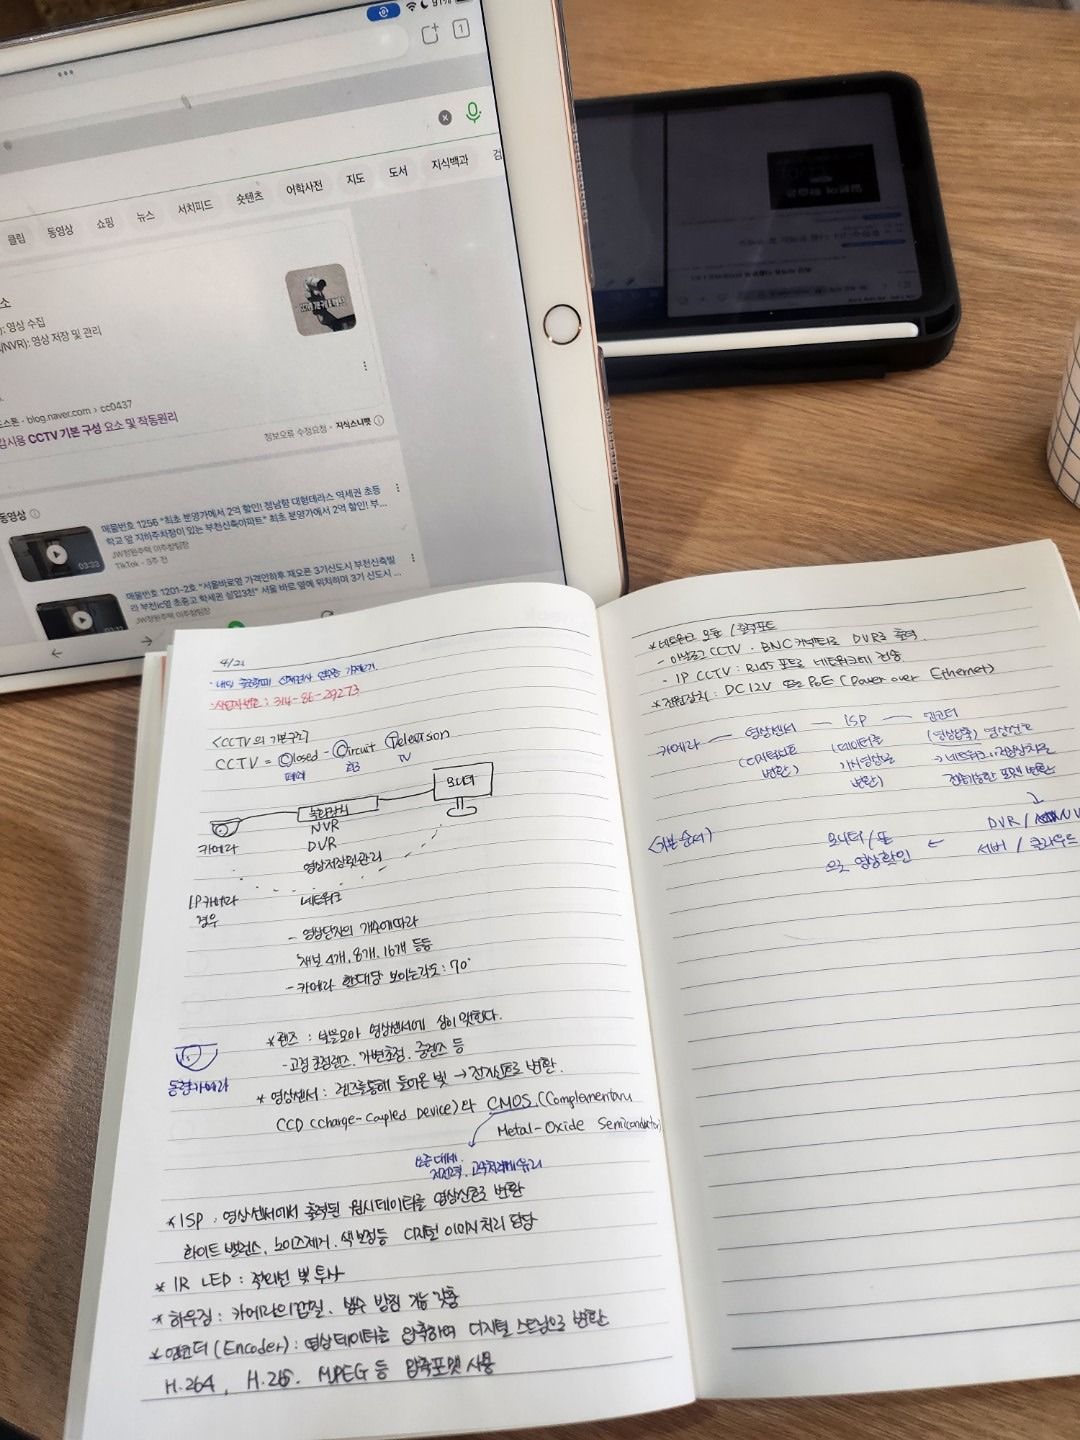 91%
1
클립 동영상 쇼핑 뉴스 서치피드 숏텐츠 어학사전 지도 도서 지식백과 검
소
: 영상 수집
(NVR): 영상 저장 및 관리
blog.naver.com › cc0437
감시용 CCTV 기본 구성 요소 및 작동원리
정보오류 수정요청 · 지식스니펫
동영상
매물번호 1256 "최초 분양가에서 2억 할인! 정남향 대형테라스 역세권 초등
학교 앞 지하주차장이 있는 부천신축아파트" 최초 분양가에서 2억 할인! 부...
JW정원주택 이주합팀장
TikTok · 3주 전
03:33
매물번호 1201-2호 "서울바로옆 가격인하후 재오픈 3기신도시 부천신축빌
라 부천ic옆 초중고 학세권 실입3천" 서울 바로 옆에 위치하며 3기 신도시 ...
JW정원주택 이주합팀장
4/21
사업자번호 : 314-86-29273
<CCTV의 기본구조>
CCTV = Closed - Circuit Television
폐쇄 회로 TV
모니터
녹화장치
카메라
NVR
DVR
영상저장및관리
IP카메라
경우
네트워크
- 영상단자의 개수에따라
채널 4개, 8개, 16개 등등
- 카메라 한대당 보이는각도 : 70°
돔형카메라
*렌즈 : 빛을모아 영상센서에 상이 맺힌다.
- 고정 초점렌즈, 가변초점, 줌렌즈 등
* 영상센서 : 렌즈를통해 들어온 빛 → 전자신호로 변환.
CCD (Charge-Coupled Device)와 CMOS (Complementary
Metal-Oxide Semiconductor)
요즘대세.
저전력, 고속처리에유리
*ISP : 영상센서에서 출력된 원시데이터를 영상신호로 변환
화이트 밸런스, 노이즈제거, 색보정등 디지털 이미지처리 담당
* IR LED : 적외선 빛 투사
* 하우징 : 카메라의껍질, 방수 방진 기능 갖춤
*엔코더(Encoder) : 영상데이터를 압축하여 디지털 스트림으로 변환
H.264, H.265, MPEG 등 압축포맷 사용
*네트워크 모듈 / 출력포트
- 아날로그 CCTV : BNC커넥터로 DVR로 출력.
- IP CCTV : RJ45 포트로 네트워크에 전송
*전원장치 : DC 12V 또는 PoE (Power over Ethernet)
카메라 — 영상센서 — ISP — 엔코더
(디지털신호 변환) (데이터를 가시영상으로 변환) (영상압축) 영상신호
→ 네트워크나 저장장치로
전송가능한 포맷 변환
<기본순서>
DVR / NV
서버 / 클라우드
← 모니터/폰
으로 영상확인